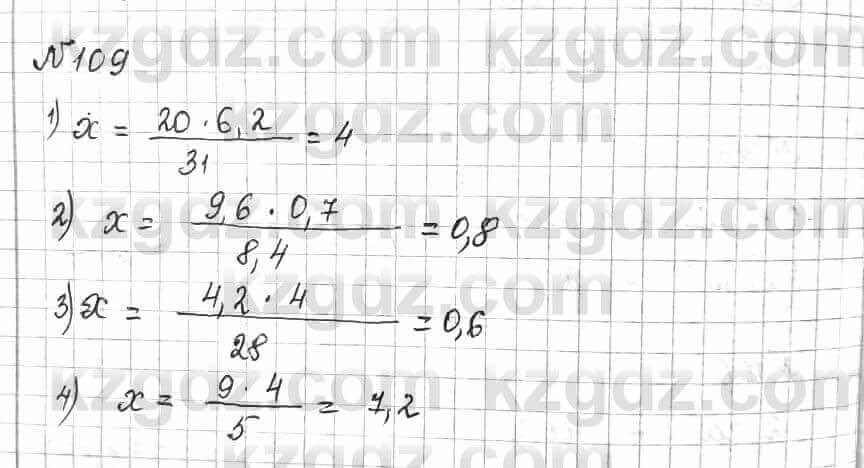 №109
1) x = 20 · 6,2 / 31 = 4
2) x = 9,6 · 0,7 / 8,4 = 0,8
3) x = 4,2 · 4 / 28 = 0,6
4) x = 9 · 4 / 5 = 7,2
kzgdz.com kzgdz.com
kzgdz.com
kzgdz.com kzgdz.com
kzgdz.com
kzgdz.com kzgdz.com
kzgdz.com